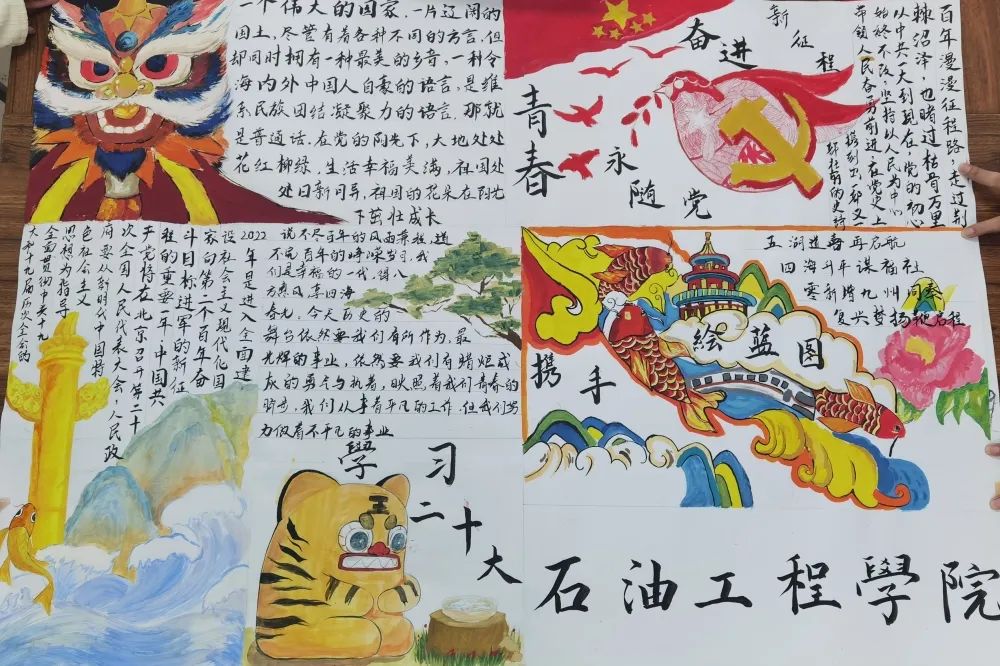 一个伟大的国家，一片辽阔的
国土，尽管有着各种不同的方言，但
却同时拥有一种最美的乡音，一种令
海内外中国人自豪的语言，是维
系民族团结、凝聚力的语言，那就
是普通话，在党的阳光下，大地处处
花红柳绿，生活幸福美满，祖国处
处日新月异，祖国的花朵在阳光
下茁壮成长
青春
奋进
新征程
永随党
百年漫漫征程路，走过荆
棘沼泽，也睹过枯骨万里
从中共一大到现在，党的初心
始终不改，坚持以人民为中心
带领人民奋勇前进，在党史上
2022
年是进入全面建
设社会主义现代化国
家、向第二个百年奋
斗目标进军的新征
程的重要一年，中国共
产党将在北京召开第二十
次全国人民代表大会，人民政
府要以新时代中国特
色社会主义
思想为指导
全面贯彻中共十九
大和十九届历次全会的
说不尽百年的风雨兼程，道
不完百年的峥嵘岁月，我
们是幸福的一代，得以
春光，今天历史的
舞台依然要我们有所作为，最
光辉的事业，依然要我们有
我们从事着平凡的工作，但我们努
力做着不平凡的事业
學习
二十大
五湖逐
再启航
四海升平谋福祉
九州同奏
复兴梦扬鞭启程
携手
绘蓝图
石油工程學院